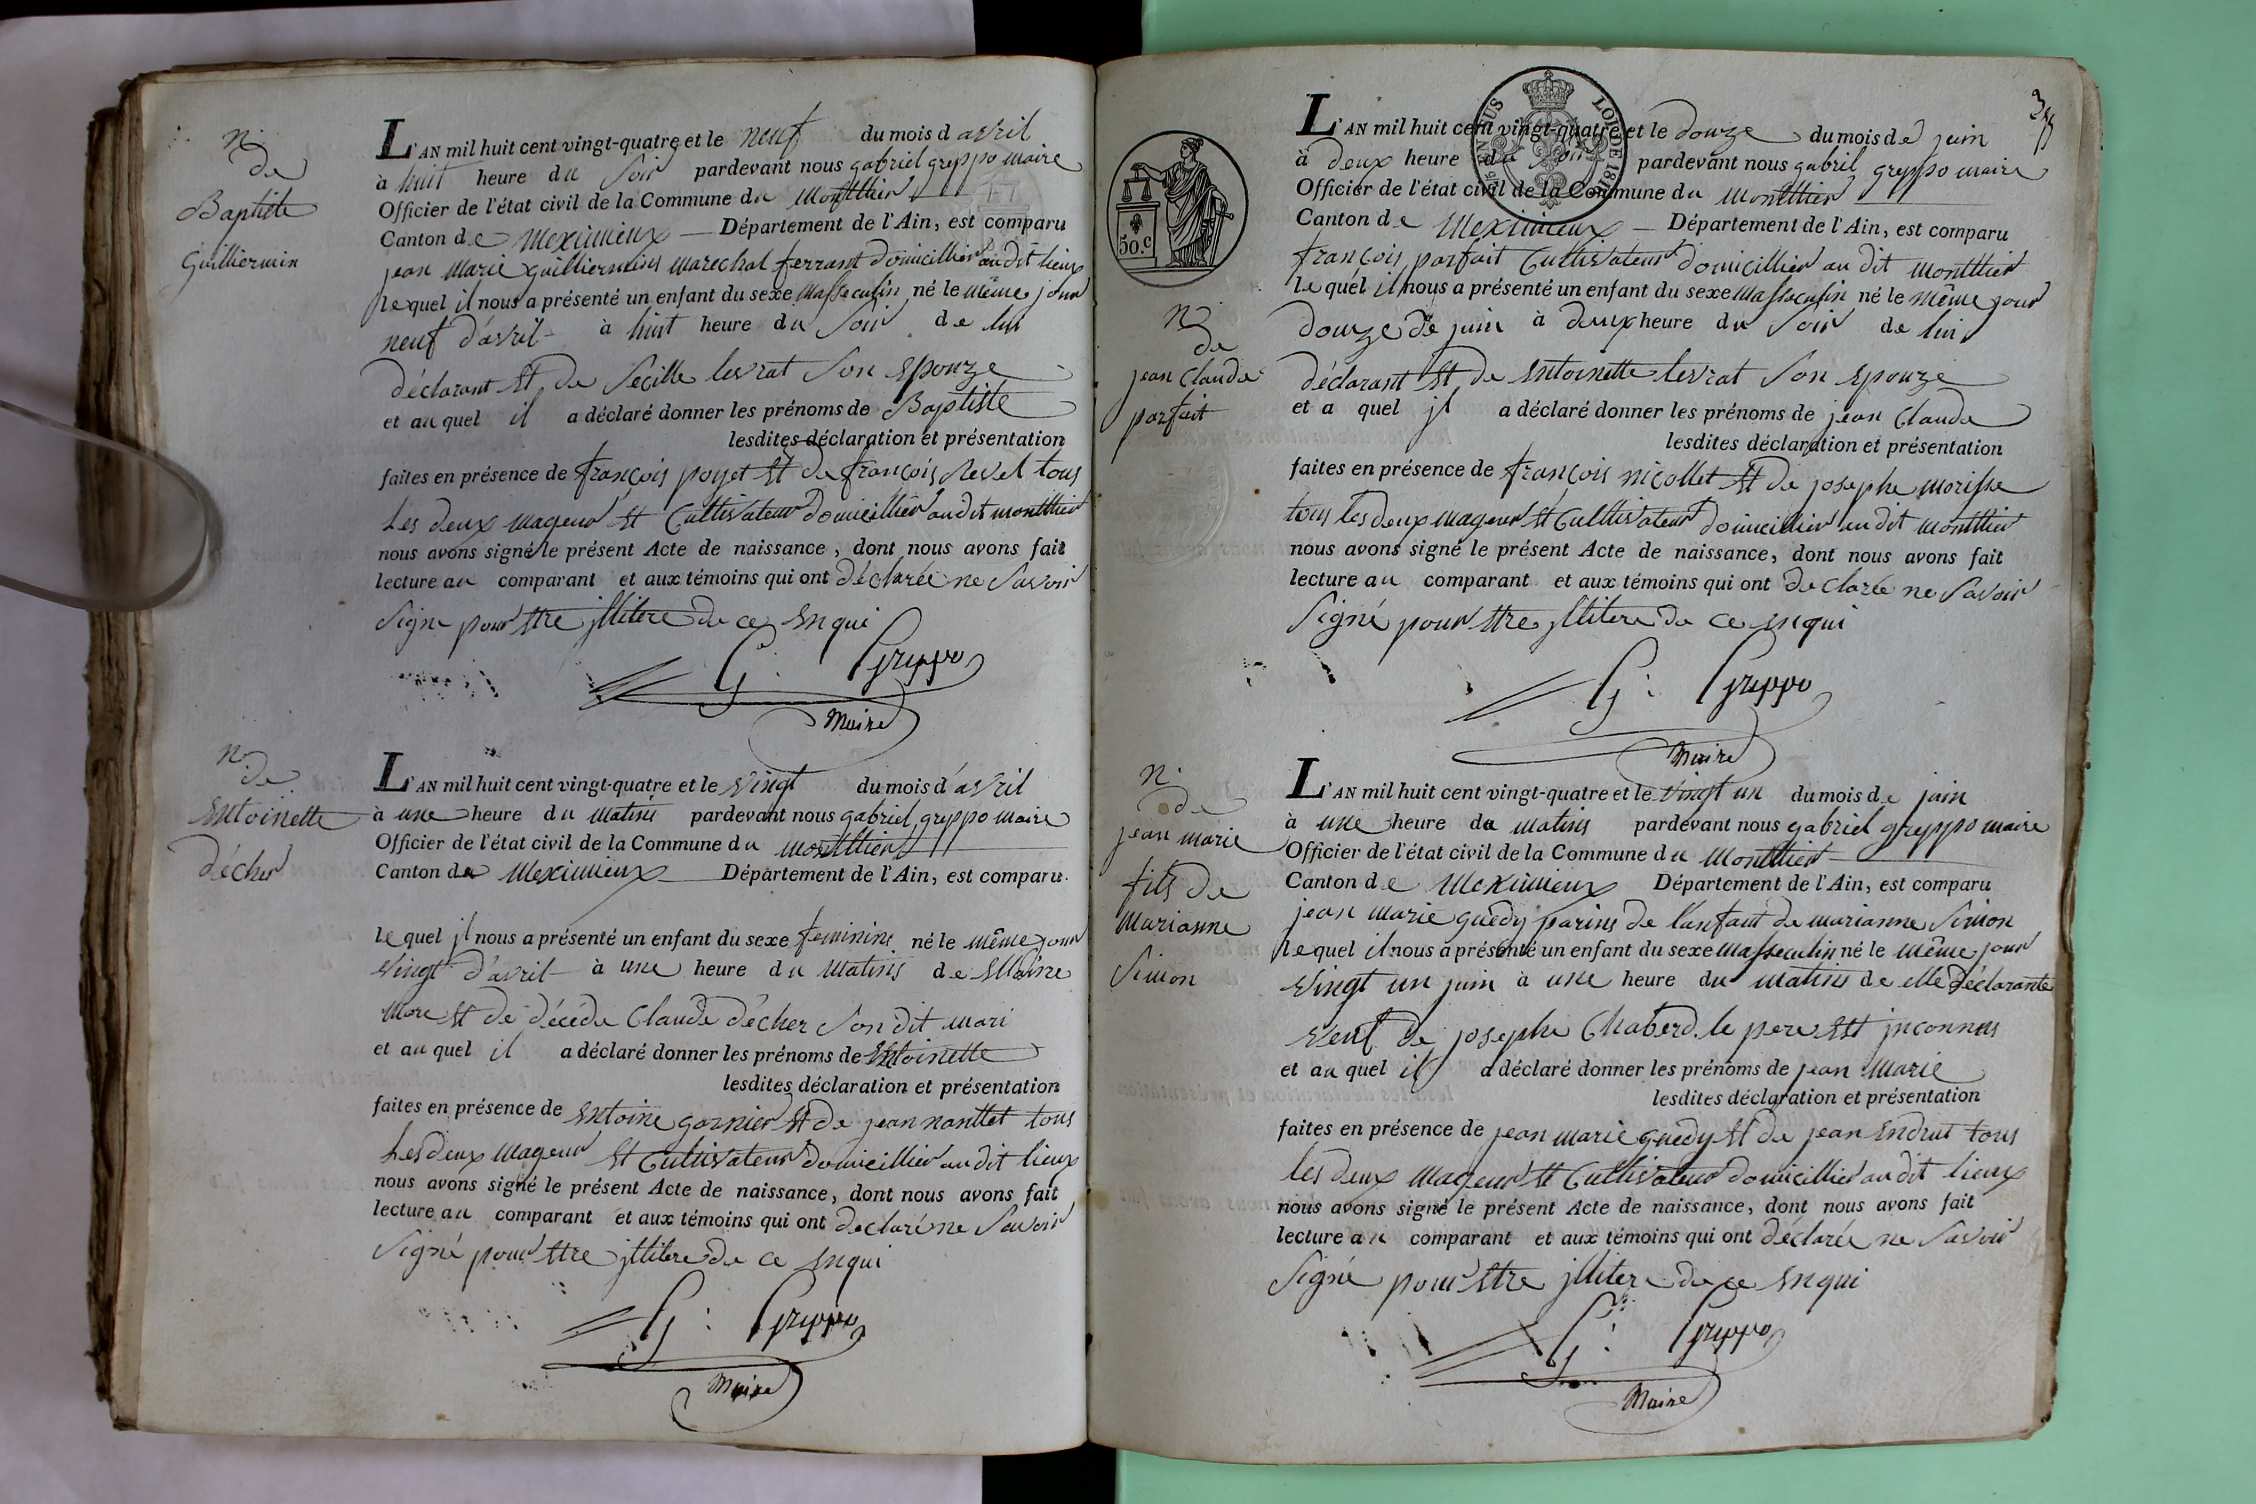 N.
de
Baptiste
Guilliermin
L'AN mil huit cent vingt-quatre et le neuf du mois d avril
à huit heure du soir pardevant nous gabriel greppo maire
Officier de l'état civil de la Commune du Montllier
Canton de Meximieux Département de l'Ain, est comparu
jean marie guilliermins marechal ferrant domicillier au dit lieux
lequel il nous a présenté un enfant du sexe Massculin né le même jour
neuf d'avril à huit heure du soir de lui
déclarant Et de Secille levrat son Epouze
et au quel il a déclaré donner les prénoms de Baptiste
lesdites déclaration et présentation
faites en présence de françois poyet Et de françois Revel tous
Les deux mageur Et Cultivateur domicillier au dit montllier
nous avons signé le présent Acte de naissance, dont nous avons fait
lecture au comparant et aux témoins qui ont déclarée ne savoir
signe pour Etre jllitere de ce Enqui
G: Greppo
Maire
N.
de
Entoinette
décher
L'AN mil huit cent vingt-quatre et le vingt du mois d'avril
à une heure du matins pardevant nous gabriel greppo maire
Officier de l'état civil de la Commune du montllier
Canton de Meximieux Département de l'Ain, est comparu
lequel jl nous a présenté un enfant du sexe feminins né le même jour
vingt d'avril à une heure du matins de
more Et de décéde Claude décher son dit mari
et au quel il a déclaré donner les prénoms de Entoinette
lesdites déclaration et présentation
faites en présence de Entoine garnier Et de jean nanttet tous
Les deux mageur Et Cultivateur domicillier au dit lieux
nous avons signé le présent Acte de naissance, dont nous avons fait
lecture au comparant et aux témoins qui ont declaré ne savoir
signé pour Etre jllitere de ce Enqui
G: Greppo
Maire
355
EN SUS
LOI DE 1816
50.c
N.
de
jean Claude
parfait
L'AN mil huit cent vingt-quatre et le douze du mois de juin
à deux heure du soir pardevant nous gabriel greppo maire
Officier de l'état civil de la Commune du montllier
Canton de Meximieux Département de l'Ain, est comparu
françois parfait Cultivateur domicillier au dit montllier
lequel il nous a présenté un enfant du sexe Massculin né le même jour
douze de juin à deux heure du soir de lui
déclarant Et de Entoinette levrat son Epouze
et a quel jl a déclaré donner les prénoms de jean Claude
lesdites déclaration et présentation
faites en présence de françois nicollet Et de josephe morisse
tous les deux mageur Et Cultivateur domicillier au dit montllier
nous avons signé le présent Acte de naissance, dont nous avons fait
lecture au comparant et aux témoins qui ont declarée ne savoir
signé pour Etre jllitere de ce Enqui
G: Greppo
Maire
N.
de
jean marie
fils de
marianne
Simon
L'AN mil huit cent vingt-quatre et le vingt un du mois de juin
à une heure du matins pardevant nous gabriel greppo maire
Officier de l'état civil de la Commune du Montllier
Canton de Meximieux Département de l'Ain, est comparu
jean marie guedy parins de l'anfant de marianne Simon
lequel il nous a présenté un enfant du sexe Massculin né le même jour
vingt un juin à une heure du matins de elle déclarante
veuf de josephe Chaberd le pere Est jnconnus
et au quel il a déclaré donner les prénoms de jean marie
lesdites déclaration et présentation
faites en présence de jean marie guedy Et de jean Endrut tous
les deux mageur Et Cultivateur domicillier au dit lieux
nous avons signé le présent Acte de naissance, dont nous avons fait
lecture au comparant et aux témoins qui ont déclarée ne savoir
signé pour Etre jllitere de ce Enqui
G: Greppo
Maire